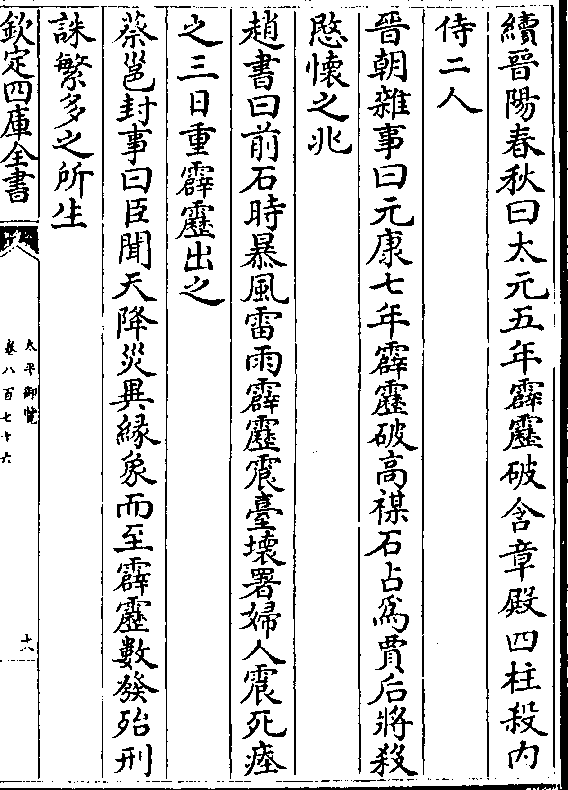 續晉陽春秋曰太元五年霹靂破含章殿四柱殺内
侍二人
晉朝雜事曰元康七年霹靂破高禖石占爲賈后將殺
愍懷之兆
趙書曰前石時暴風雷雨霹靂震臺壊署婦人震死瘞
之三日重霹靂出之
蔡邕封事曰臣聞天降災異縁象而至霹靂數發殆刑
誅繁多之所生
欽定四庫全書
太平御覽
卷八百七十六
十八